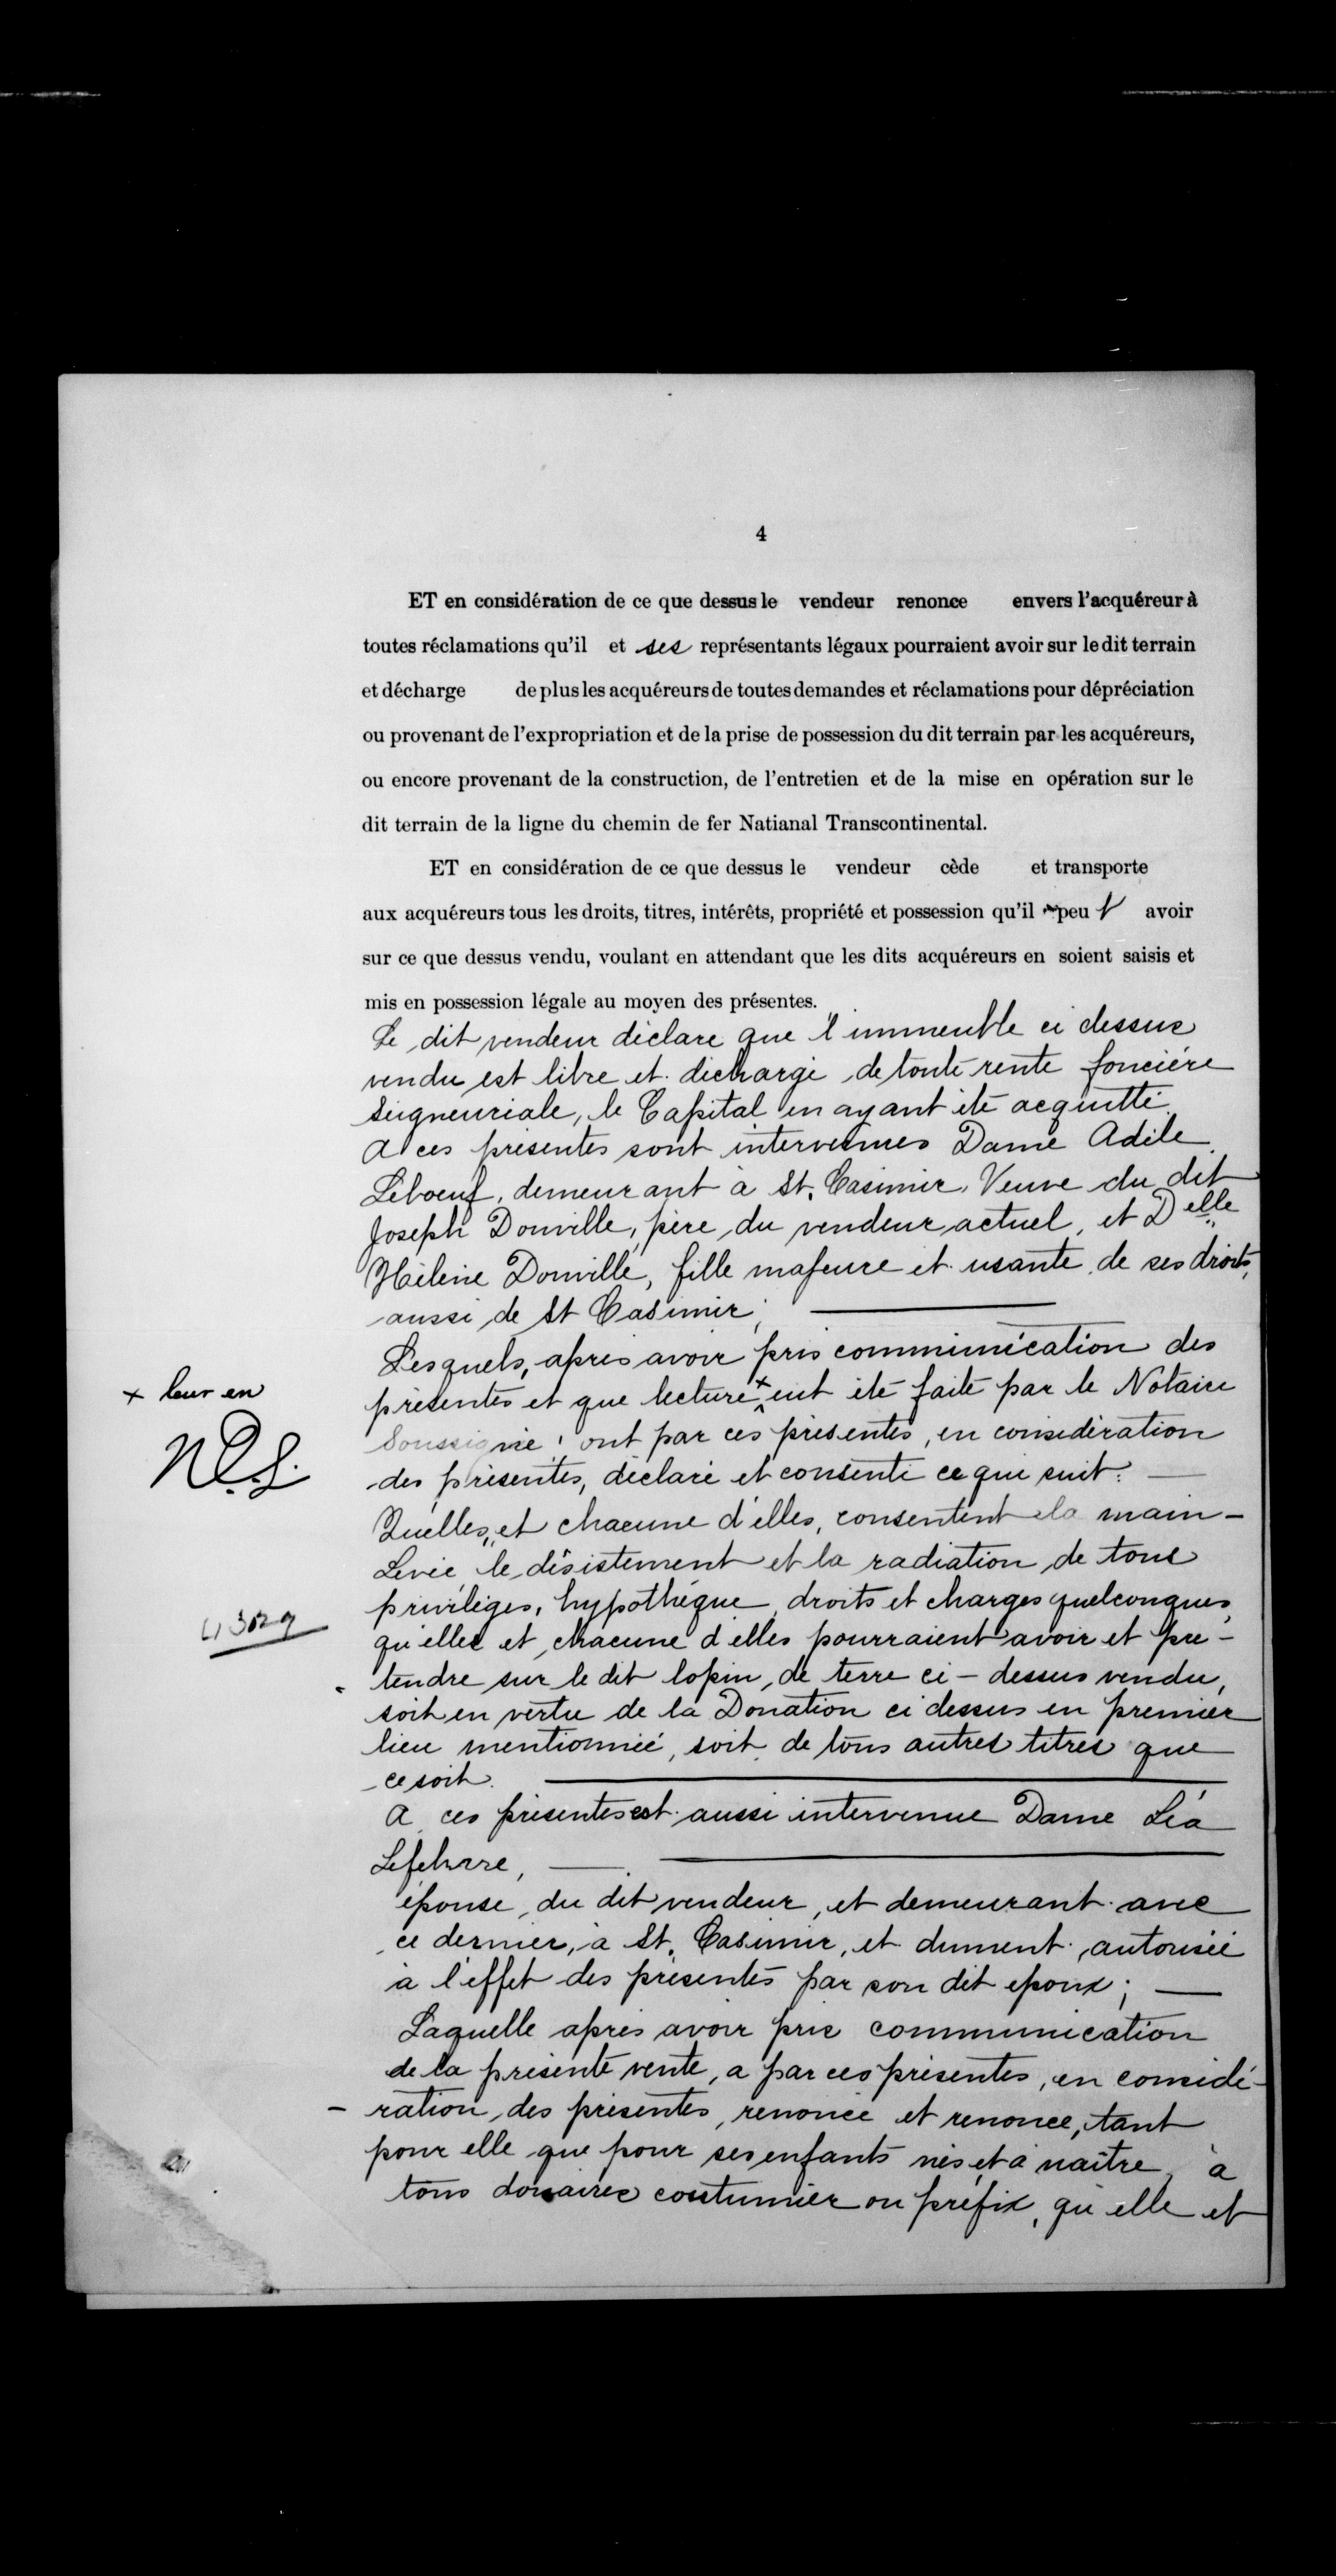 4
ET en considération de ce que dessus le vendeur renonce envers l'acquéreur à
toutes réclamations qu'il et ses représentants légaux pourraient avoir sur le dit terrain
et décharge de plus les acquéreurs de toutes demandes et réclamations pour dépréciation
ou provenant de l'expropriation et de la prise de possession du dit terrain par les acquéreurs,
ou encore provenant de la construction, de l'entretien et de la mise en opération sur le
dit terrain de la ligne du chemin de fer Natianal Transcontinental.
ET en considération de ce que dessus le vendeur cède et transporte
aux acquéreurs tous les droits, titres, intérêts, propriété et possession qu'il peut avoir
sur ce que dessus vendu, voulant en attendant que les dits acquéreurs en soient saisis et
mis en possession légale au moyen des présentes.
Le dit vendeur déclare que l'immeuble ci dessus
vendu est libre et déchargé de toute rente foncière
Seigneuriale, le Capital en ayant été acquitté.
A ces présentes sont intervenues Dame Adèle
Leboeuf, demeurant à St. Casimir, Veuve du dit
Joseph Douville, père du vendeur actuel, et Delle
Hélène Douville, fille majeure et usante de ses droits,
aussi de St Casimir;
Lesquels, après avoir pris communication des
présentes et que lecture x eut été faite par le Notaire
x leur en
Soussigné, ont par ces présentes, en considération
des présentes, déclaré et consenti ce qui suit:
Qu'elles, et chacune d'elles, consentent la main-
Levée, le désistement et la radiation de tous
privilèges, hypothèque, droits et charges quelconques,
qu'elles et chacune d'elles pourraient avoir et pré-
tendre sur le dit lopin de terre ci-dessus vendu,
soit en vertu de la Donation ci dessus en premier
lieu mentionnée, soit de tous autres titres que
ce soit.
A ces présentes est aussi intervenue Dame Léa
Lefebvre,
épouse du dit vendeur, et demeurant avec
ce dernier, à St. Casimir, et dument autorisée
à l'effet des présentes par son dit epoux;
Laquelle après avoir pris communication
de la présente vente, a par ces présentes, en considé-
ration des présentes, renoncé et renonce, tant
pour elle que pour ses enfants nés et à naître, à
tous douaires coutumier ou préfix, qu'elle et